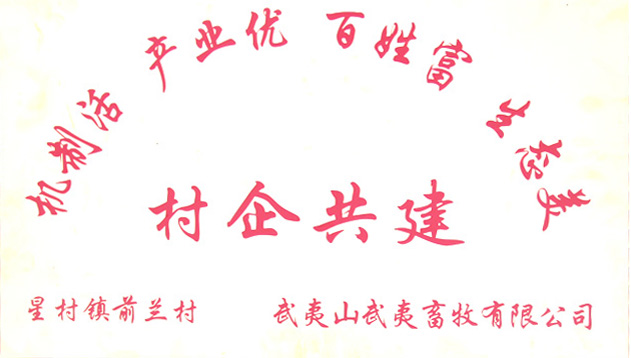 机制活 产业优 百姓富 生态美
村企共建
星村镇前兰村 武夷山武夷畜牧有限公司